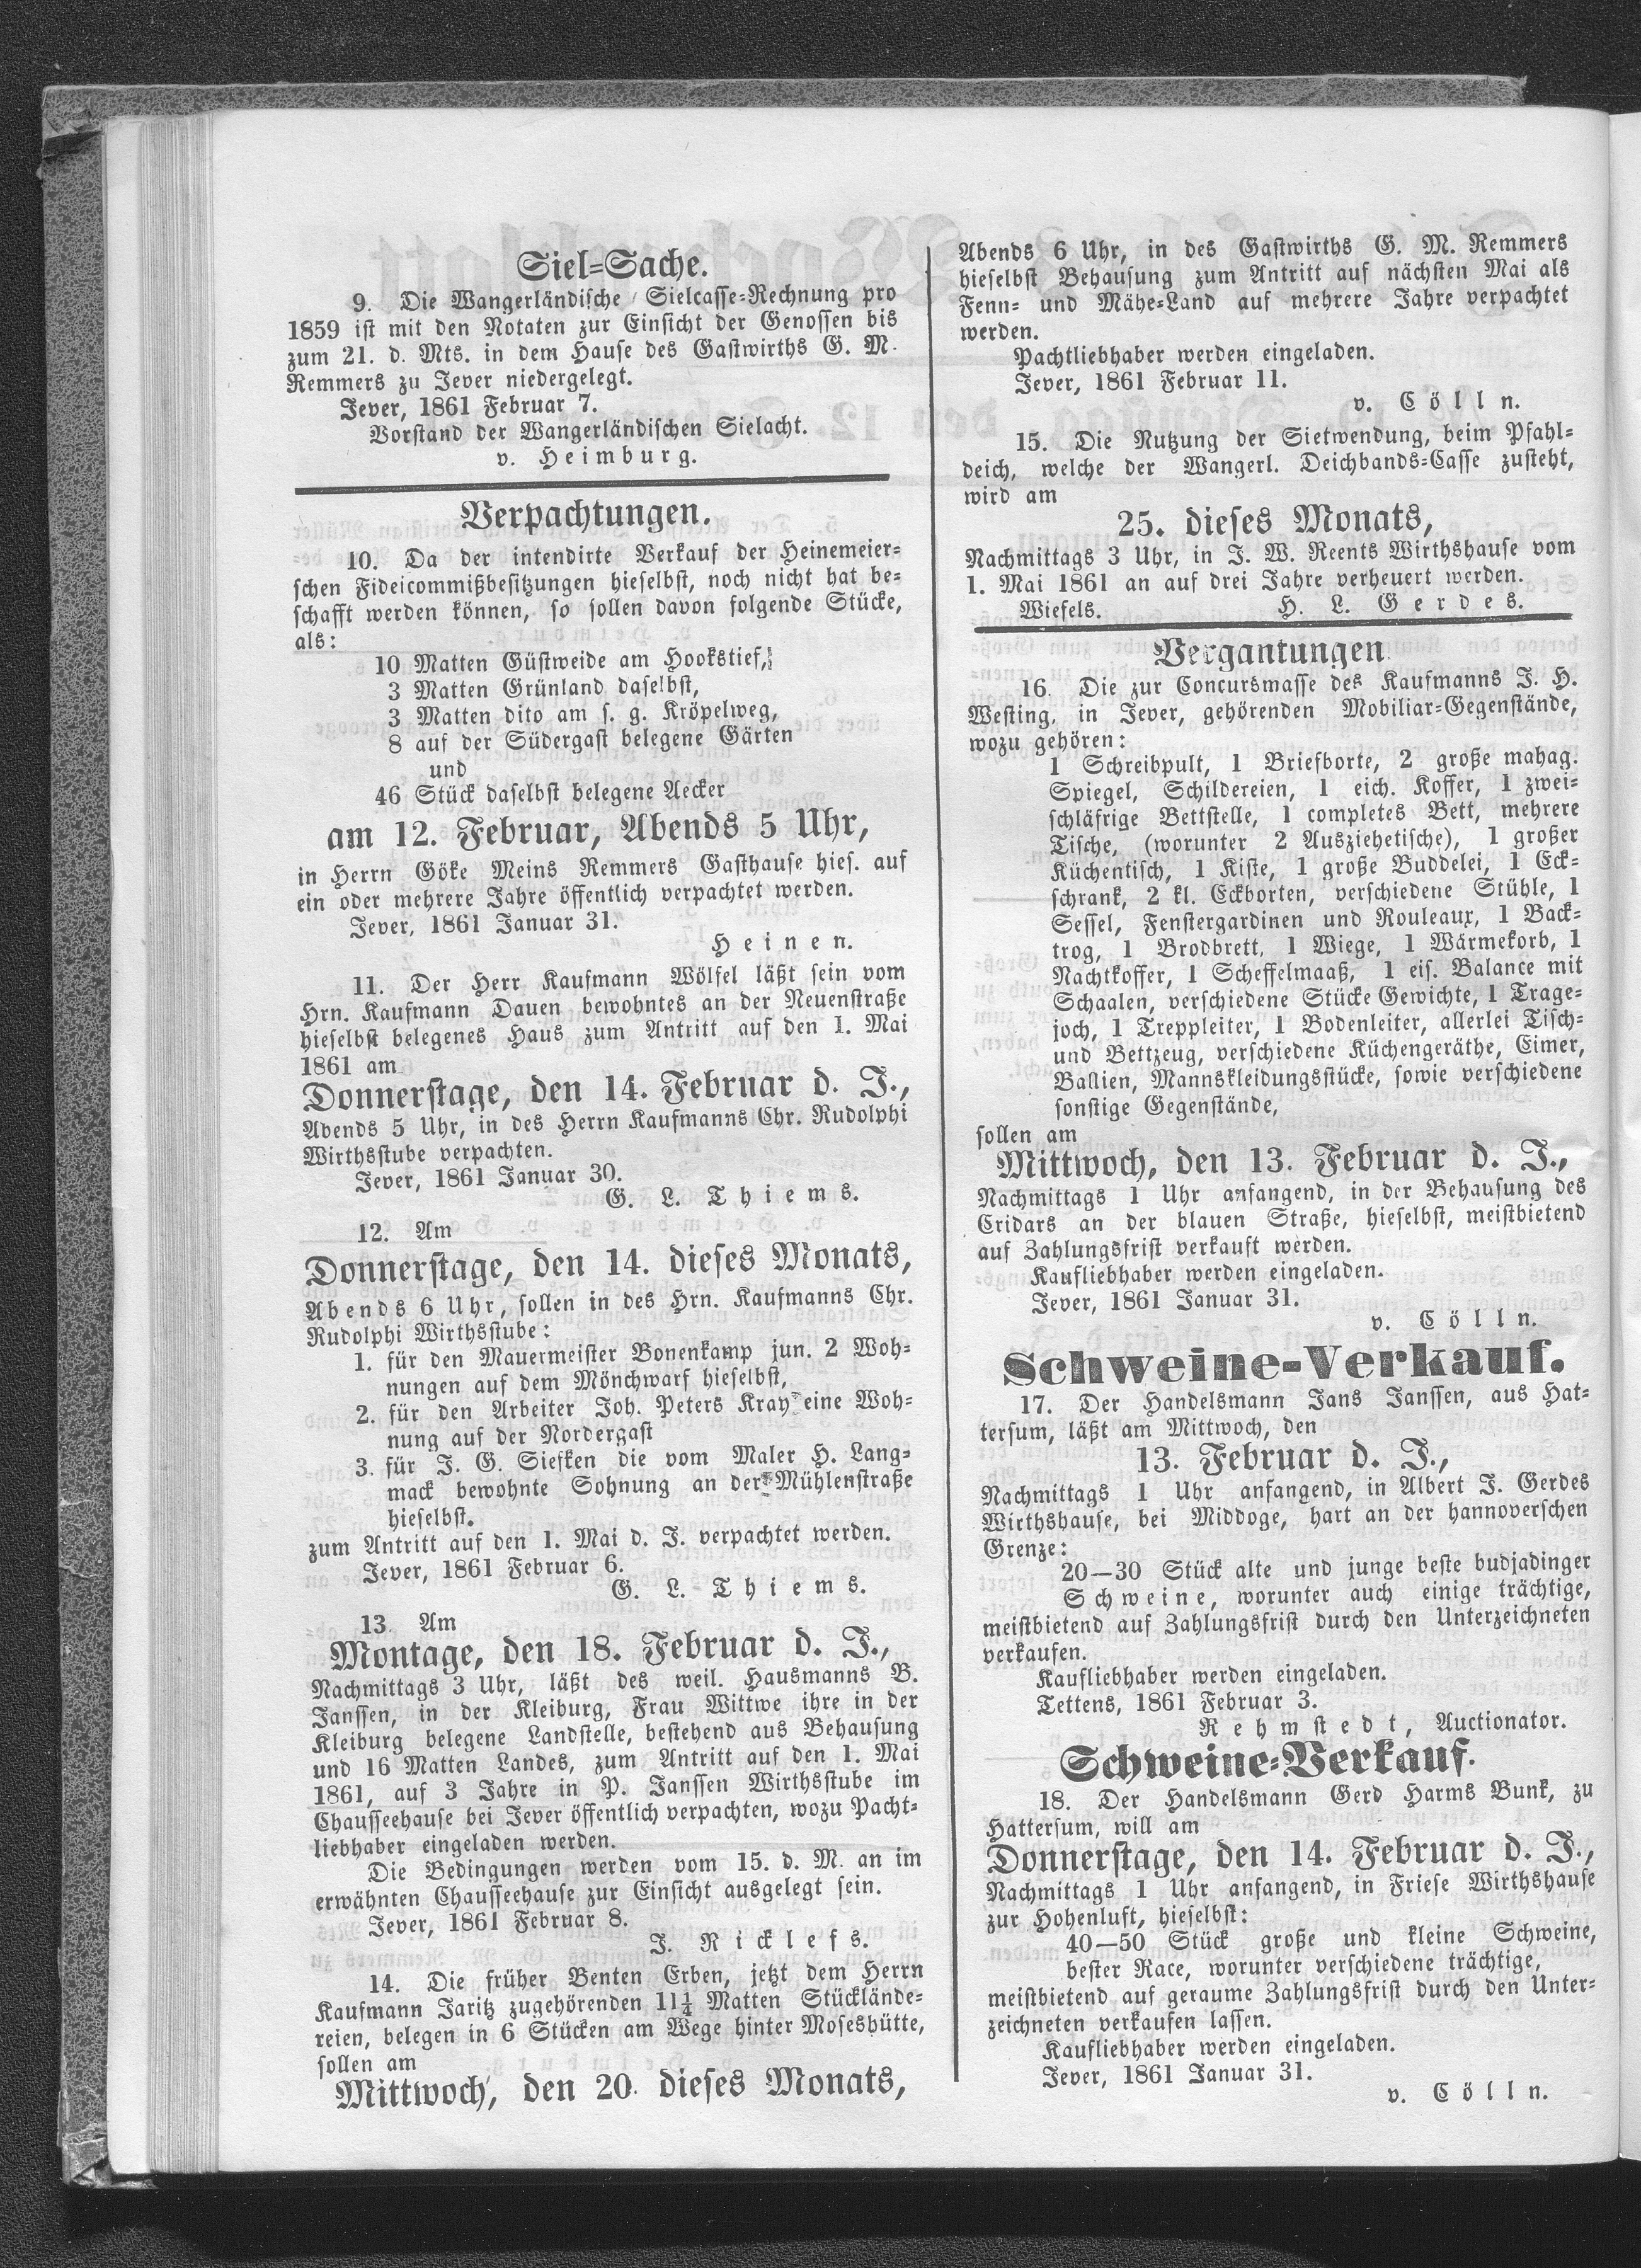 Siel=Sache.
9. Die Wangerländische Sielcasse=Rechnung pro
1859 ist mit den Notaten zur Einsicht der Genossen bis
zum 21. d. Mts. in dem Hause des Gastwirths G. M.
Remmers zu Jever niedergelegt.
Jever, 1861 Februar 7.
Vorstand der Wangerländischen Sielacht.
v. Heimburg.
Verpachtungen.
10. Da der intendirte Verkauf der Heinemeier=
schen Fideicommißbesitzungen hieselbst, noch nicht hat be=
schafft werden können, so sollen davon folgende Stücke,
als:
10 Matten Güstweide am Hookstief,
3 Matten Grünland daselbst,
3 Matten dito am s. g. Kröpelweg,
8 auf der Südergast belegene Gärten
und
46 Stück daselbst belegene Aecker
am 12. Februar, Abends 5 Uhr,
in Herrn Göke Meins Remmers Gasthause hies. auf
ein oder mehrere Jahre öffentlich verpachtet werden.
Jever, 1861 Januar 31.
Heinen.
11. Der Herr Kaufmann Wölfel läßt sein vom
Hrn. Kaufmann Dauen bewohntes an der Neuenstraße
hieselbst belegenes Haus zum Antritt auf den 1. Mai
1861 am
Donnerstage, den 14. Februar d. J.,
Abends 5 Uhr, in des Herrn Kaufmanns Chr. Rudolphi
Wirthsstube verpachten.
Jever, 1861 Januar 30.
G. L. Thiems.
12. Am
Donnerstage, den 14. dieses Monats,
Abends 6 Uhr, sollen in des Hrn. Kaufmanns Chr.
Rudolphi Wirthsstube:
1. für den Mauermeister Bonenkamp jun. 2 Woh=
nungen auf dem Mönchwarf hieselbst,
2. für den Arbeiter Joh. Peters Kray eine Woh=
nung auf der Nordergast
3. für J. G. Siefken die vom Maler H. Lang=
mack bewohnte Sohnung an der Mühlenstraße
hieselbst.
zum Antritt auf den 1. Mai d. J. verpachtet werden.
Jever, 1861 Februar 6.
G. L. Thiems.
13. Am
Montage, den 18. Februar d. J.,
Nachmittags 3 Uhr, läßt des weil. Hausmanns B.
Janssen, in der Kleiburg, Frau Wittwe ihre in der
Kleiburg belegene Landstelle, bestehend aus Behausung
und 16 Matten Landes, zum Antritt auf den 1. Mai
1861, auf 3 Jahre in P. Janssen Wirthsstube im
Chausseehause bei Jever öffentlich verpachten, wozu Pacht=
liebhaber eingeladen werden.
Die Bedingungen werden vom 15. d. M. an im
erwähnten Chausseehause zur Einsicht ausgelegt sein.
Jever, 1861 Februar 8.
J. Ricklefs.
14. Die früher Benten Erben, jetzt dem Herrn
Kaufmann Jaritz zugehörenden 11¼ Matten Stücklände=
reien, belegen in 6 Stücken am Wege hinter Moseshütte,
sollen am
Mittwoch, den 20. dieses Monats,
Abends 6 Uhr, in des Gastwirths G. M. Remmers
hieselbst Behausung zum Antritt auf nächsten Mai als
Fenn= und Mähe=Land auf mehrere Jahre verpachtet
werden.
Pachtliebhaber werden eingeladen.
Jever, 1861 Februar 11.
v. Cölln.
15. Die Nutzung der Sietwendung, beim Pfahl=
deich, welche der Wangerl. Deichbands=Casse zusteht,
wird am
25. dieses Monats,
Nachmittags 3 Uhr, in J. W. Reents Wirthshause vom
1. Mai 1861 an auf drei Jahre verheuert werden.
Wiefels. H. L. Gerdes.
Vergantungen.
16. Die zur Concursmasse des Kaufmanns J. H.
Westing, in Jever, gehörenden Mobiliar=Gegenstände,
wozu gehören:
1 Schreibpult, 1 Briefborte, 2 große mahag.
Spiegel, Schildereien, 1 eich. Koffer, 1 zwei=
schläfrige Bettstelle, 1 completes Bett, mehrere
Tische, (worunter 2 Ausziehetische), 1 großer
Küchentisch, 1 Kiste, 1 große Buddelei, 1 Eck=
schrank, 2 kl. Eckborten, verschiedene Stühle, 1
Sessel, Fenstergardinen und Rouleaux, 1 Back=
trog, 1 Brodbrett, 1 Wiege, 1 Wärmekorb, 1
Nachtkoffer, 1 Scheffelmaaß, 1 eis. Balance mit
Schaalen, verschiedene Stücke Gewichte, 1 Trage=
joch, 1 Treppleiter, 1 Bodenleiter, allerlei Tisch=
und Bettzeug, verschiedene Küchengeräthe, Eimer,
Ballien, Mannskleidungsstücke, sowie verschiedene
sonstige Gegenstände,
sollen am
Mittwoch, den 13. Februar d. J.,
Nachmittags 1 Uhr anfangend, in der Behausung des
Cridars an der blauen Straße, hieselbst, meistbietend
auf Zahlungsfrist verkauft werden.
Kaufliebhaber werden eingeladen.
Jever, 1861 Januar 31.
v. Cölln.
Schweine-Verkauf.
17. Der Handelsmann Jans Janssen, aus Hat=
tersum, läßt am Mittwoch, den
13. Februar d. J.,
Nachmittags 1 Uhr anfangend, in Albert J. Gerdes
Wirthshause, bei Middoge, hart an der hannoverschen
Grenze:
20—30 Stück alte und junge beste budjadinger
Schweine, worunter auch einige trächtige,
meistbietend auf Zahlungsfrist durch den Unterzeichneten
verkaufen.
Kaufliebhaber werden eingeladen.
Tettens, 1861 Februar 3.
Rehmstedt, Auctionator.
Schweine=Verkauf.
18. Der Handelsmann Gerd Harms Bunk, zu
Hattersum, will am
Donnerstage, den 14. Februar d. J.,
Nachmittags 1 Uhr anfangend, in Friese Wirthshause
zur Hohenluft, hieselbst:
40—50 Stück große und kleine Schweine,
bester Race, worunter verschiedene trächtige,
meistbietend auf geraume Zahlungsfrist durch den Unter=
zeichneten verkaufen lassen.
Kaufliebhaber werden eingeladen.
Jever, 1861 Januar 31.
v. Cölln.